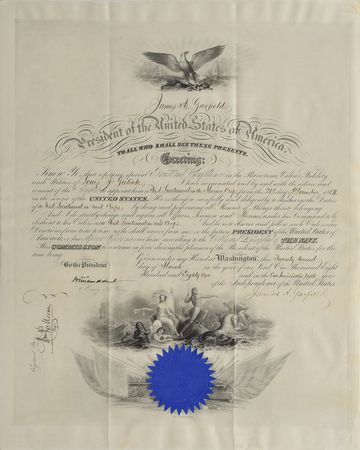 James A. Garfield
President of the United States of America,
TO ALL WHO SHALL SEE THESE PRESENTS,
Greeting:
Know Ye, that reposing special Trust and Confidence in the Patriotism, Valor, Fidelity
and Abilities of I have nominated and by and with the advice and
consent of the Senate do appoint him a First Lieutenant in the Marine Corps from the
in the service of the UNITED STATES. He is therefore carefully and diligently to discharge the Duties
of a First Lieutenant in said Corps, by doing and performing all manner of things thereunto belonging.
And I do strictly charge and require all Officers, Seamen and Marines under his Command to be
obedient to his Orders as First Lieutenant in said Corps. And he is to observe and follow such Orders and
Directions from time to time as he shall receive from me, or the future PRESIDENT of the United States of
America, or the Superior Officer set over him, according to the Rules and Discipline of THE NAVY.
This COMMISSION to continue in force during the pleasure of the President of the United States for the
time being.
Given under my Hand at Washington, this Twenty Second
day of March in the year of our Lord One Thousand Eight
Hundred and Eighty One and in the One Hundred and fifth year
of the Independence of the United States.
By the President
James A. Garfield